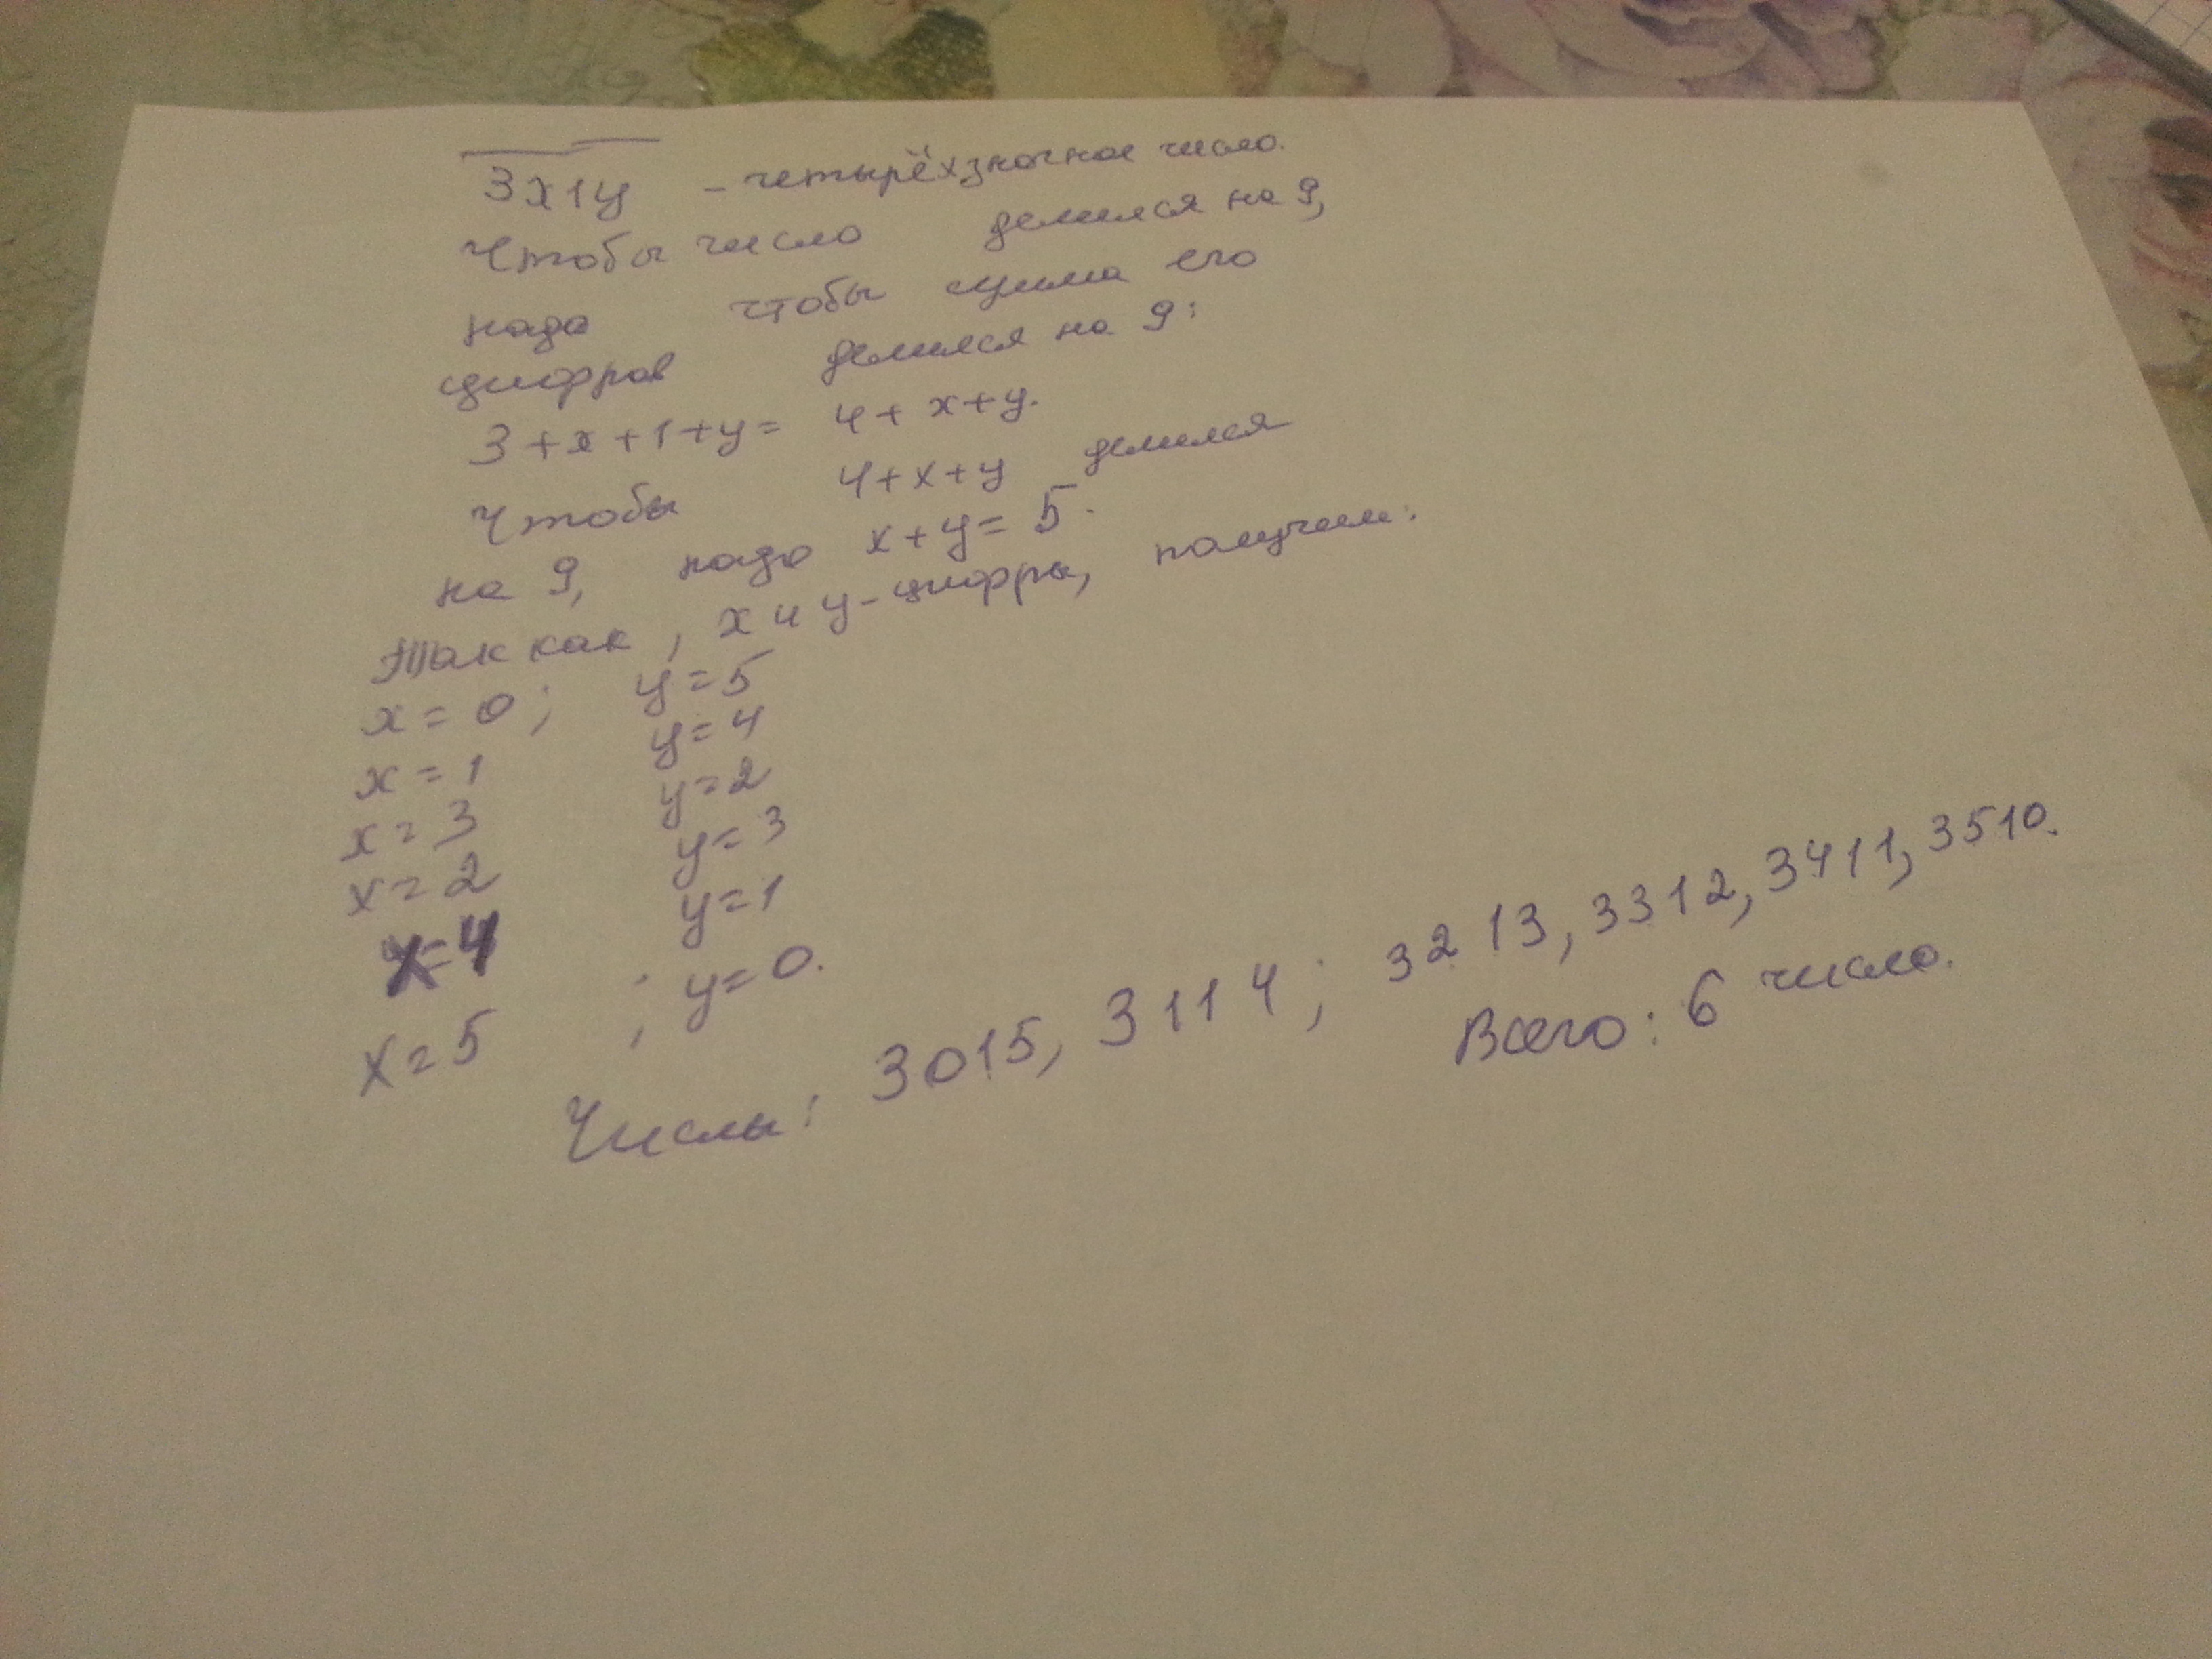 3x1y - четырёхзночное число.
Чтобы число делился на 9,
надо чтобы сумма его
цифров делился на 9:
3+x+1+y= 4+x+y.
Чтобы 4+x+y делился
на 9, надо x+y=5.
Так как, x и y-цифры, получим:
x=0; y=5
x=1 y=4
x=3 y=2
x=2 y=3
x=4 y=1
x=5 ; y=0.
Числы: 3015, 3114; 3213, 3312, 3411, 3510.
Всего: 6 число.